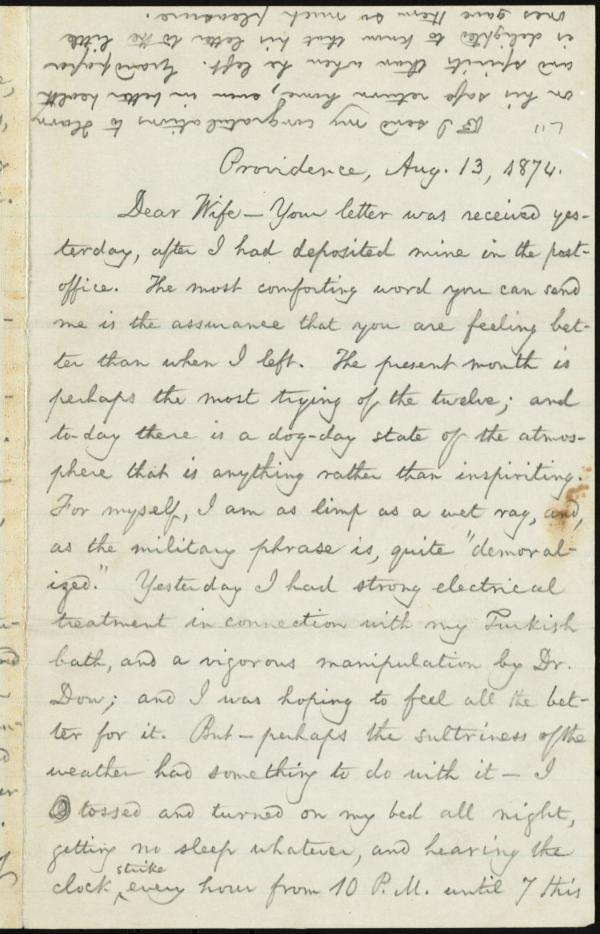 I send my congratulations to Harry
on his safe return home, even in better health
and spirits than when he left. Grandpapa
is delighted to know that his letter to the little
ones gave them so much pleasure.
Providence, Aug. 13, 1874.
Dear Wife — Your letter was received yes-
terday, after I had deposited mine in the post-
office. The most comforting word you can send
me is the assurance that you are feeling bet-
ter than when I left. The present month is
perhaps the most trying of the twelve; and
to-day there is a dog-day state of the atmos-
phere that is anything rather than inspiriting.
For myself, I am as limp as a wet rag, and,
as the military phrase is, quite "demoral-
ized." Yesterday I had strong electrical
treatment in connection with my Turkish
bath, and a vigorous manipulation by Dr.
Dow; and I was hoping to feel all the bet-
ter for it. But — perhaps the sultriness of the
weather had something to do with it — I
tossed and turned on my bed all night,
getting no sleep whatever, and hearing the
clock strike every hour from 10 P.M. until 7 this